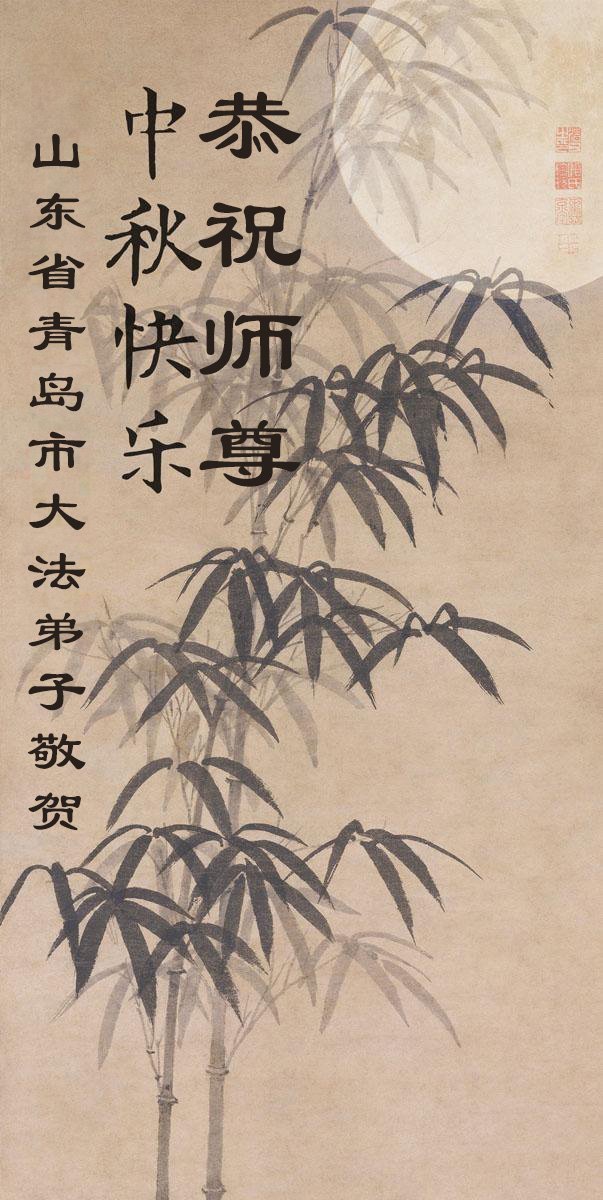 恭祝师尊
中秋快乐
山东省青岛市大法弟子敬贺